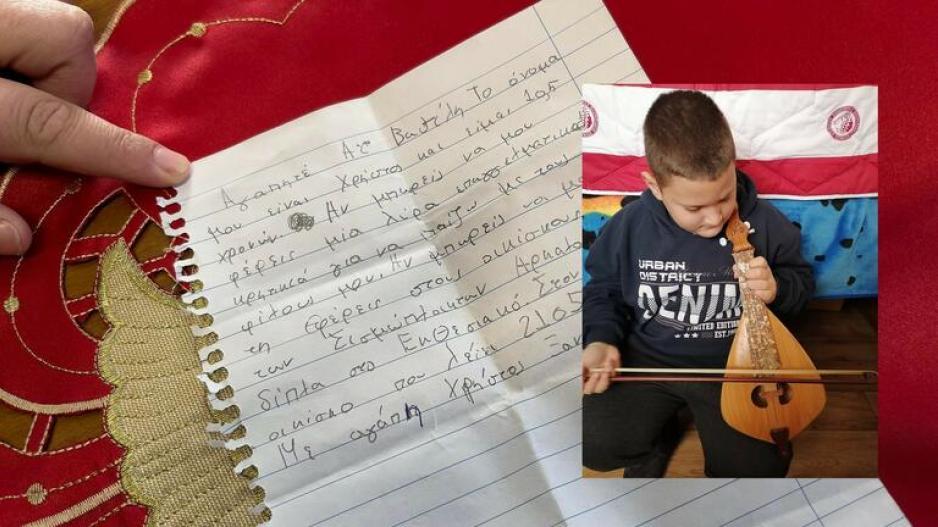 Αγαπητέ Αϊ Βασίλη Το όνομα
μου είναι Χρήστος και είμαι 10,5
χρονών. Αν μπορείς να μου
φέρεις μία λύρα επαγγελματικ
κρητικά για να παίζω με τους
φίλους μου. Αν μπορείς να μο
τη φέρεις στους οικίσκους
των Σεισμόπληκτων Αρκαλο
δίπλα στο Εκθεσιακό. Στον
οικίσκο που λέει 2105
Με αγάπη Χρήστος Ξαν
URBAN
DISTRICT
DENIM
LIMITED EDITION
EST.